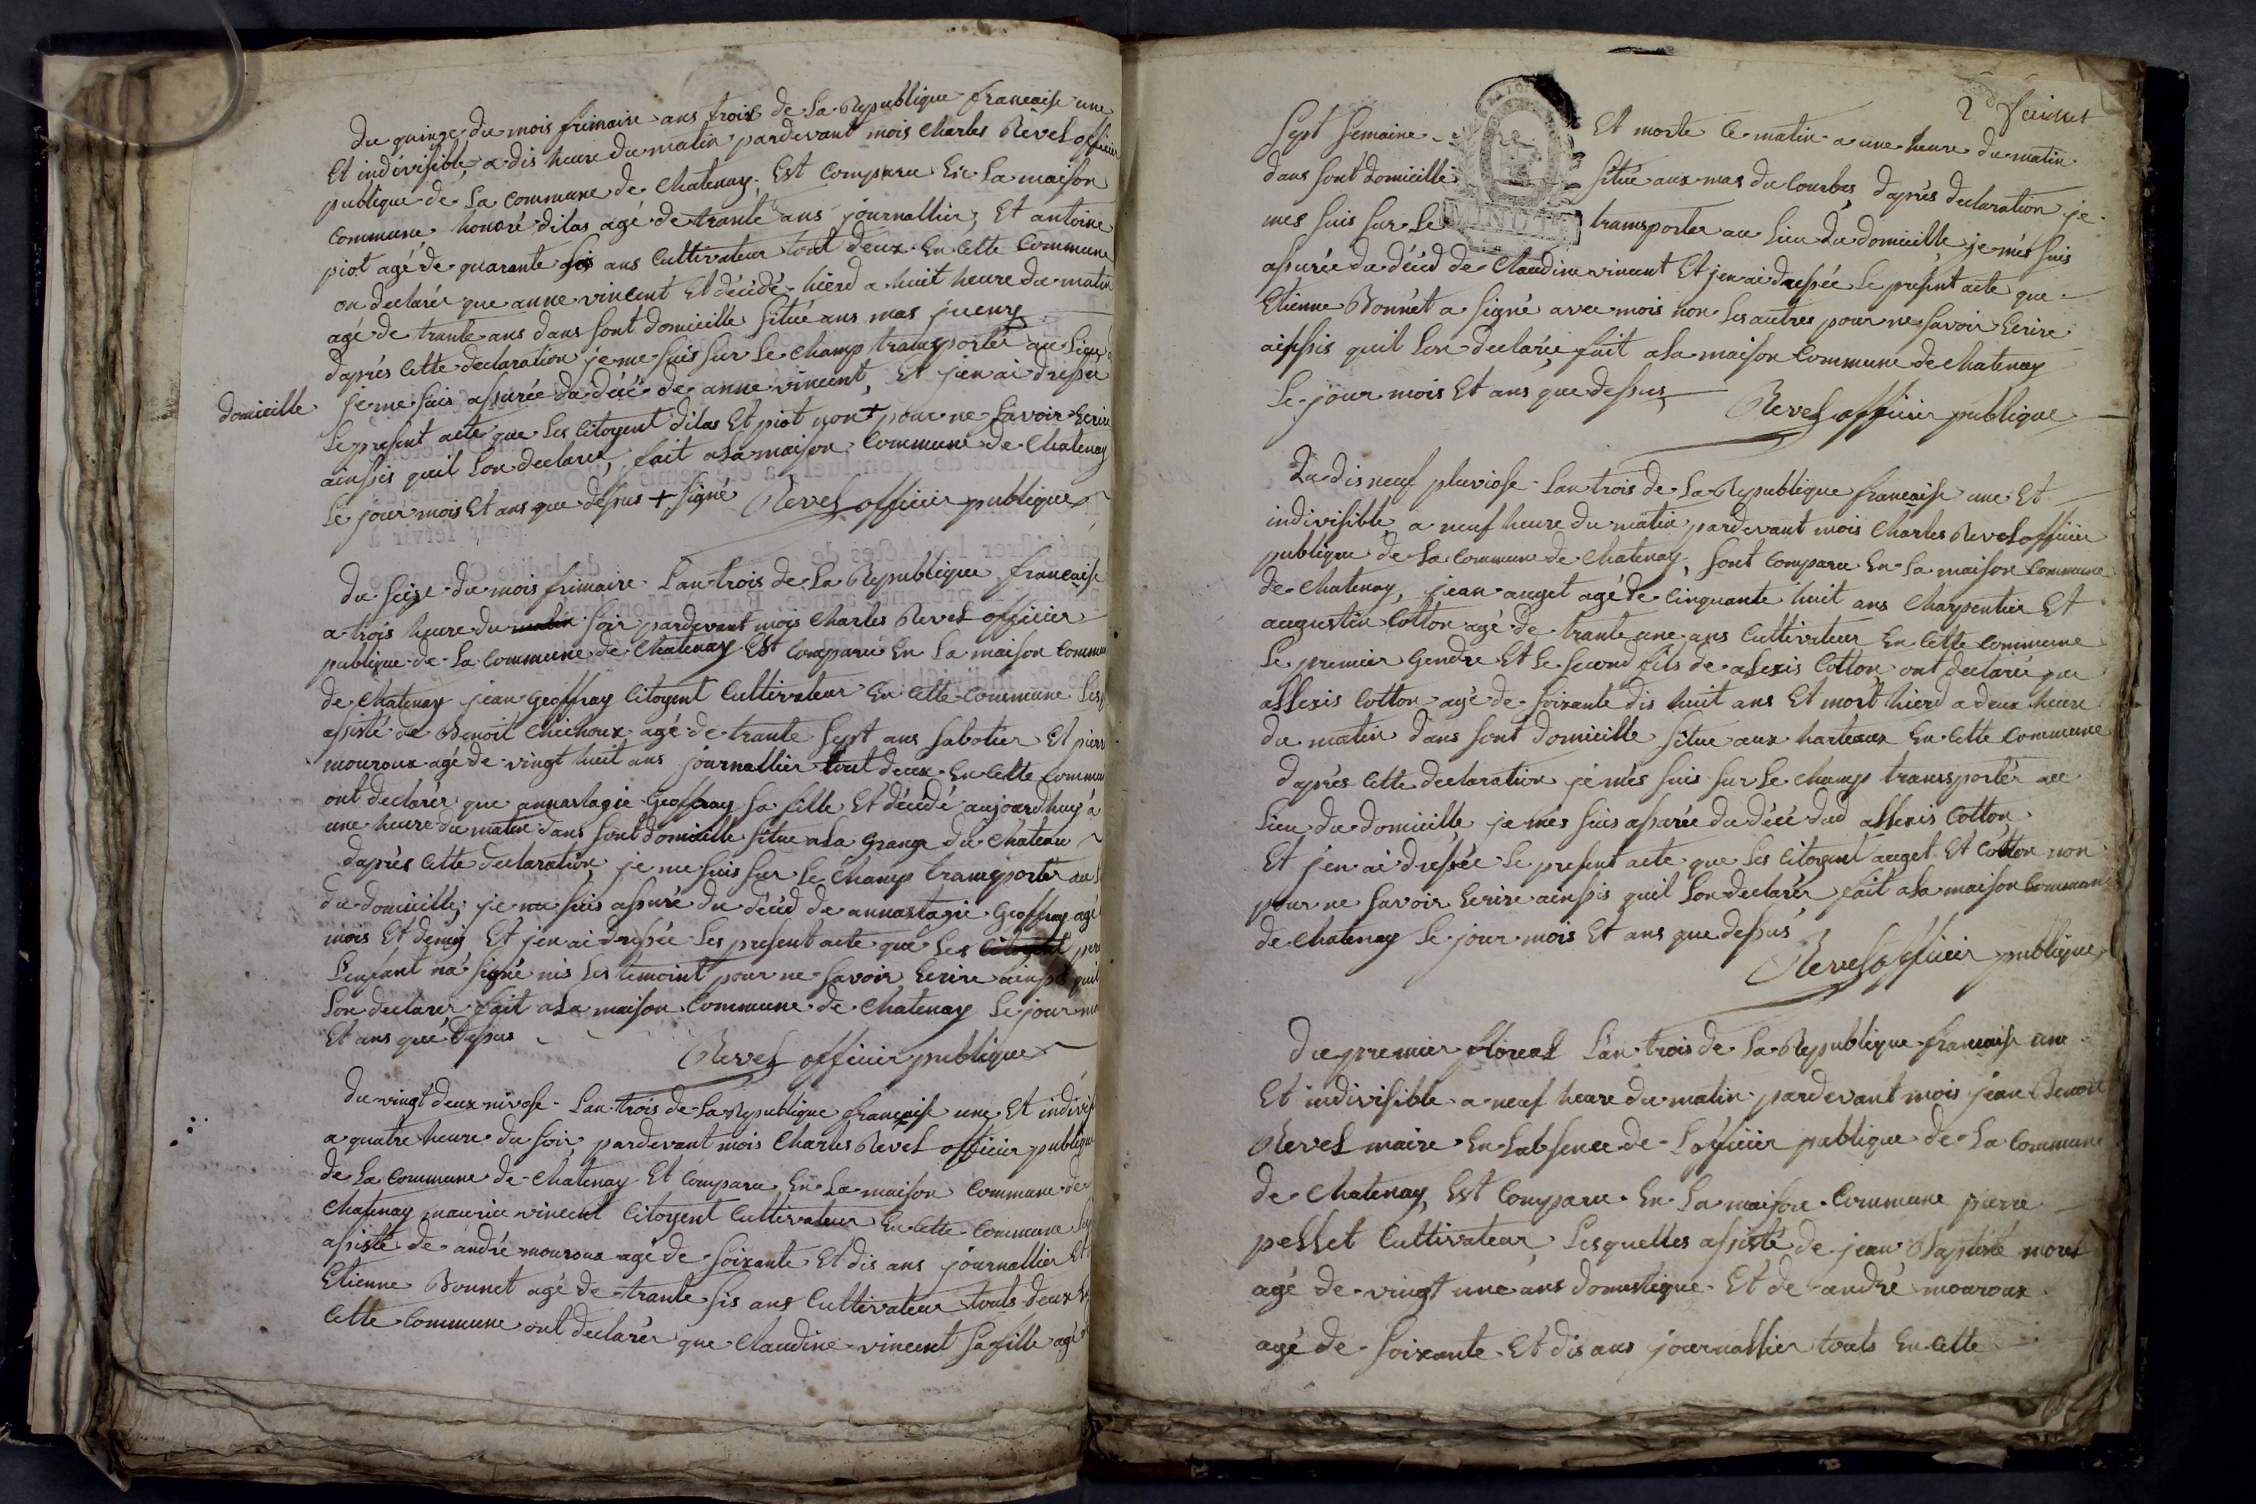 Du quinze du mois frimaire ans trois de la Republique francaise une
Et indivisible, a dis heure du matin pardevant mois Charles Revel officier
publique de la commune de Chatenay, Est comparu En la maison
commune honoré dilas agé de trante ans journallier, Et antoine
piot agé de quarante sis ans Cultivateur tout deux En cette commune
on declarér que anne vincent Et décédé hierd a huit heure du matin
agé de trante ans dans sont domicille situé aus mas
daprés cette declaration je me suis sur le champ transporter au lieu du
domicille
je me suis assurée du décé de anne vincent, Et jen ai dressée
le present acte que les citoyent dilas Et piot non + pour ne savoir Ecrire
ainssis quil lon declarer, fait a la maison commune de Chatenay
le jour mois Et ans que dessus + signé Revel officier publique
Du seize du mois frimaire Lan trois de la Republique francaise
a trois heure du matin soir pardevant mois Charles Revel officier
publique de la commune de Chatenay Est comparu En la maison commune
de Chatenay jean Geoffray Citoyent Cultivateur En cette commune
assisté de Benoit Chichoux agé de trante sept ans sabotier Et pierre
mouroux agé de vingt huit ans journallier tout deux En cette commune
ont declarér que annastagie Geoffray sa fille Et décédé aujourdhuy à
une heure du matin dans sont domicille situe a la grange du chateau
daprés cette declaration, je me suis sur le champ transporter au
du domicille, je me suis assuré du décéd de annastagie Geoffray agé
mois Et demis Et jen ai dressée les present acte que les citoyent
Lenfant na signé nis les temoint pour ne savoir Ecrire ainssis quil
lon declarer fait a la maison commune de Chatenay le jour mois
Et ans que dessus
Revel officier publique
Du vingt deux nivose Lan trois de la Republique francaise une Et indivis
a quatre heure du soir pardevant mois Charles Revel officier publique
de la commune de Chatenay Et comparu En la maison commune de
Chatenay maurice vincent Citoyent Cultivateur En cette commune
assisté de andré mouroux agé de soixante Et dis ans journallier Et
Etienne Bonnet agé de trante sis ans Cultivateur touts deux
cette commune ont declarér que Claudine vincent sa fille agé
2d
sept semaine Et morte ce matin a une heure du matin
dans sont domicille situé aux mas du Courbes, daprés declaration je
mes suis sur le transporter au lieu du domicille je mes suis
MINUTE
assurée du décéd de Claudine vincent Et jen ai dressée le present acte que
Etienne Bonnét a signé avec mois non les autres pour ne savoir Ecrire
ainssis quil lon declarée fait a la maison commune de Chatenay
le jour mois Et ans que dessus
Revel officier publique
Du dis neuf pluviose Lan trois de la Republique francaise une Et
indivisible a neuf heure du matin pardevant mois Charles Revel officier
publique de la commune de Chatenay, sont comparu En la maison commune
de Chatenay, jean auget agé de cinquante huit ans charpentier Et
augustin Cotton agé de trante une ans Cultivateur En cette commune
le premier gendre Et le second fils de alexis Cotton, ont declarér que
allexis Cotton agé de soixante dis huit ans Et mort hierd a deux heure
du matin dans sont domicille situe aux harteaux En cette commune
daprés cette declaration je mes suis sur le champ transportér au
lieu du domicille je mes suis assurée du décé dud allexis Cotton
Et jen ai dressée le present acte que les citoyent auget Et Cotton non
pour ne savoir Ecrire ainssis quil lon declarér fait a la maison commune
de Chatenay le jour mois Et ans que dessus
Revel officier publique
Du premier floreal Lan trois de la Republique francaise une
Et indivisible a neuf heure du matin pardevant mois jean Benoit
Revel maire En labsence de lofficier publique de la commune
de Chatenay, Est comparu En la maison commune pierre
pellet Cultivateur, lesquelles assisté de jean Baptisté morel
agé de vingt une ans domestique Et de andré mouroux
agé de soixante Et dis ans journallier touts En cette